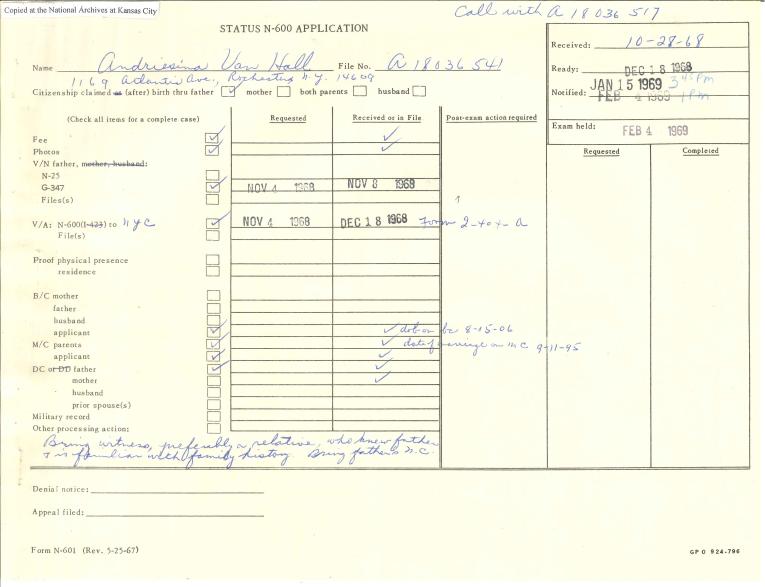 Copied at the National Archives at Kansas City
Call with A 18 036 517
STATUS N-600 APPLICATION
Name Andriesina Van Hall File No. A 18036 541
1169 Atlantic Ave., Rochester N.Y. 14609
Citizenship claimed as (after) birth thru father ✓ mother both parents husband
Received: 10-28-68
Ready: DEC 18 1968
Notified: JAN 15 1969 3 45 PM
FEB 4 1969 1 PM
Exam held: FEB 4 1969
(Check all items for a complete case) Requested Received or in File Post-exam action required Requested Completed
Fee ✓ ✓
Photos ✓ ✓
V/N father, mother, husband:
N-25
G-347 ✓ NOV 4 1968 NOV 8 1968
Files(s)
V/A: N-600(I-423) to NYC ✓ NOV 4 1968 DEC 18 1968 Form 2-
File(s)
Proof physical presence
residence
B/C mother
father
husband
applicant ✓ ✓ dob on bc 8-15-06
M/C parents ✓ ✓ date of marriage on M.C. 9-11-95
applicant ✓ ✓
DC or DD father ✓ ✓
mother ✓
husband
prior spouse(s)
Military record
Other processing action:
Bring witness, preferably a relative, who knew father
& is familiar with family history. Bring father's N.C.
Denial notice:
Appeal filed:
Form N-601 (Rev. 5-25-67)
GPO 924-796